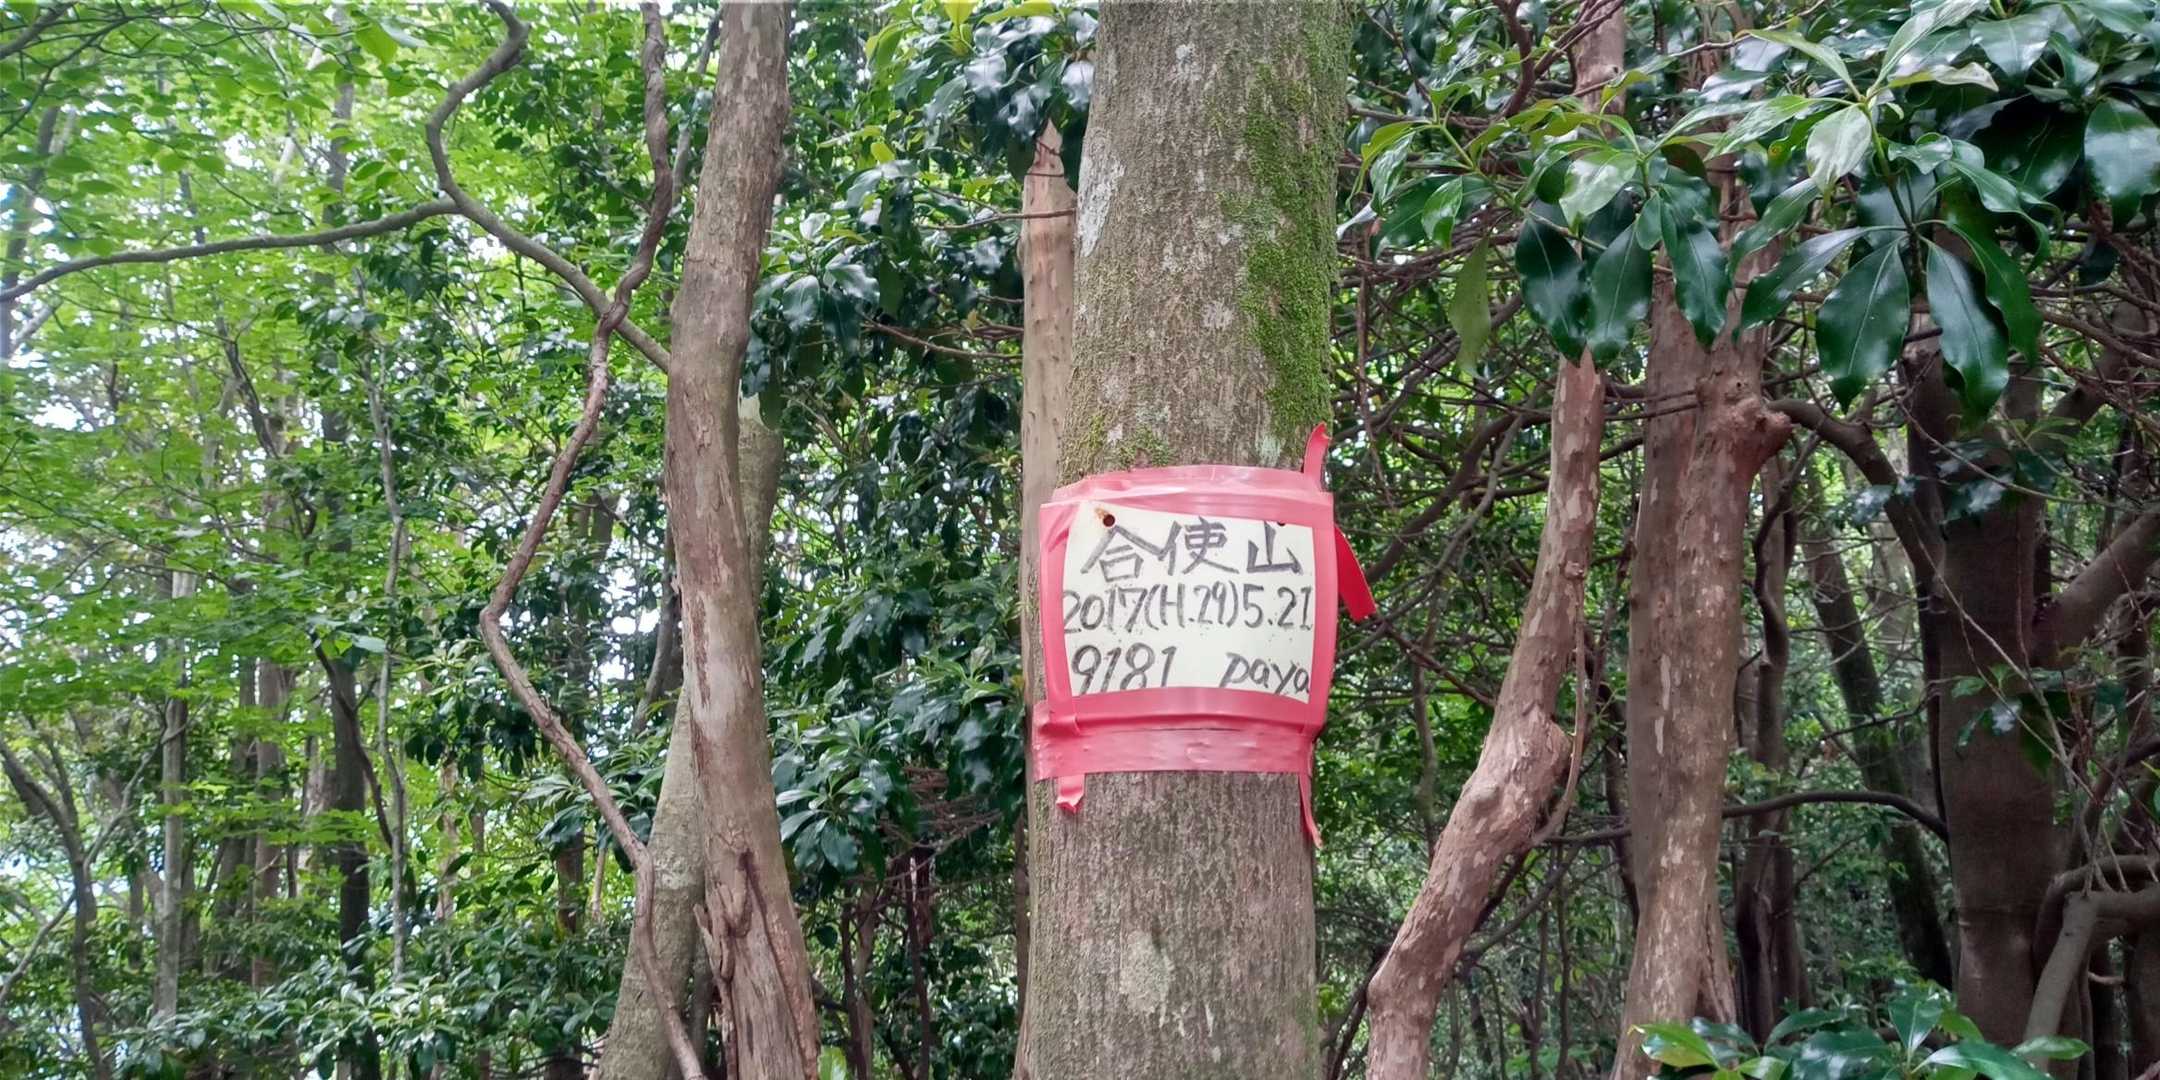 合使山
2017(H.29)5.21
9181 paya